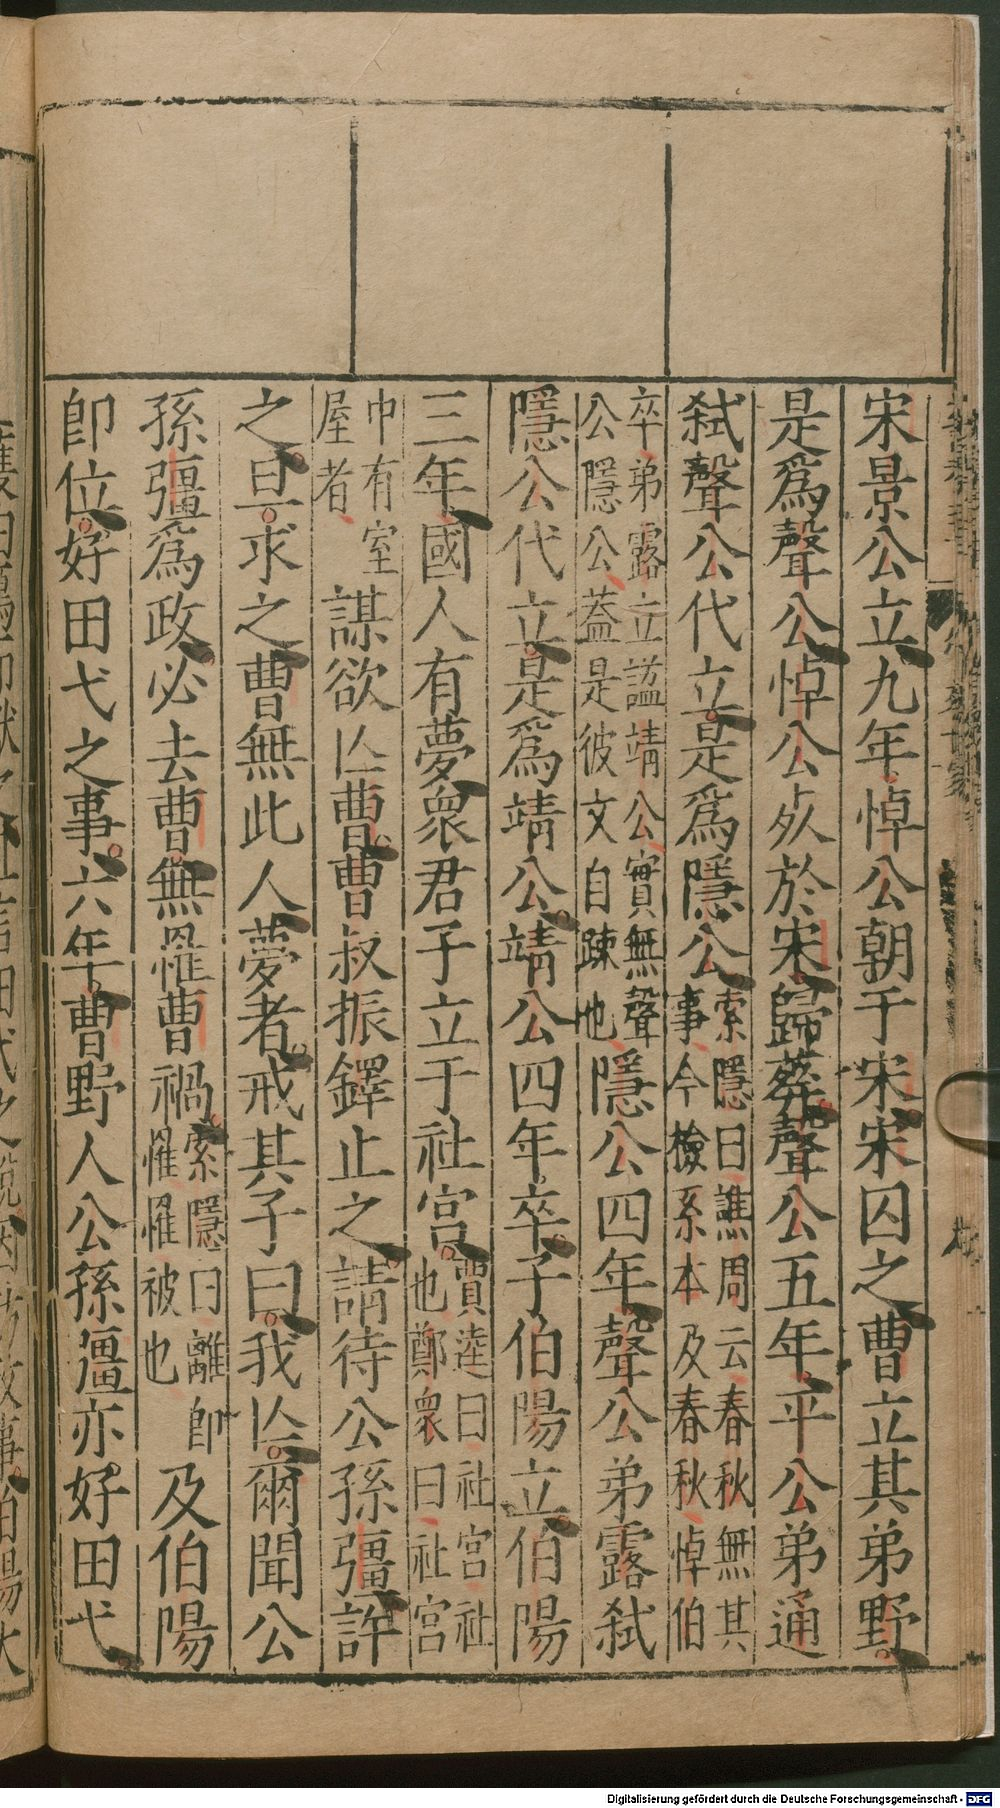 宋景公立九年悼公朝于宋宋囚之曹立其弟野
是爲聲公悼公死於宋歸葬聲公五年平公弟通
弒聲公代立是爲隱公索隱曰譙周云春秋無其
事今檢系本及春秋悼伯
卒弟露立謚靖公實無聲
公隱公蓋是彼文自踈也隱公四年聲公弟露弒
隱公代立是爲靖公靖公四年卒子伯陽立伯陽
三年國人有夢衆君子立于社宮賈逵曰社宮社
也鄭衆曰社宮
中有室
屋者謀欲亾曹曹叔振鐸止之請待公孫彊許
之旦求之曹無此人夢者戒其子曰我亾爾聞公
孫彊爲政必去曹無罹曹禍索隱曰離即
罹罹被也及伯陽
卽位好田弋之事六年曹野人公孫彊亦好田弋
Digitalisierung gefördert durch die Deutsche Forschungsgemeinschaft - DFG